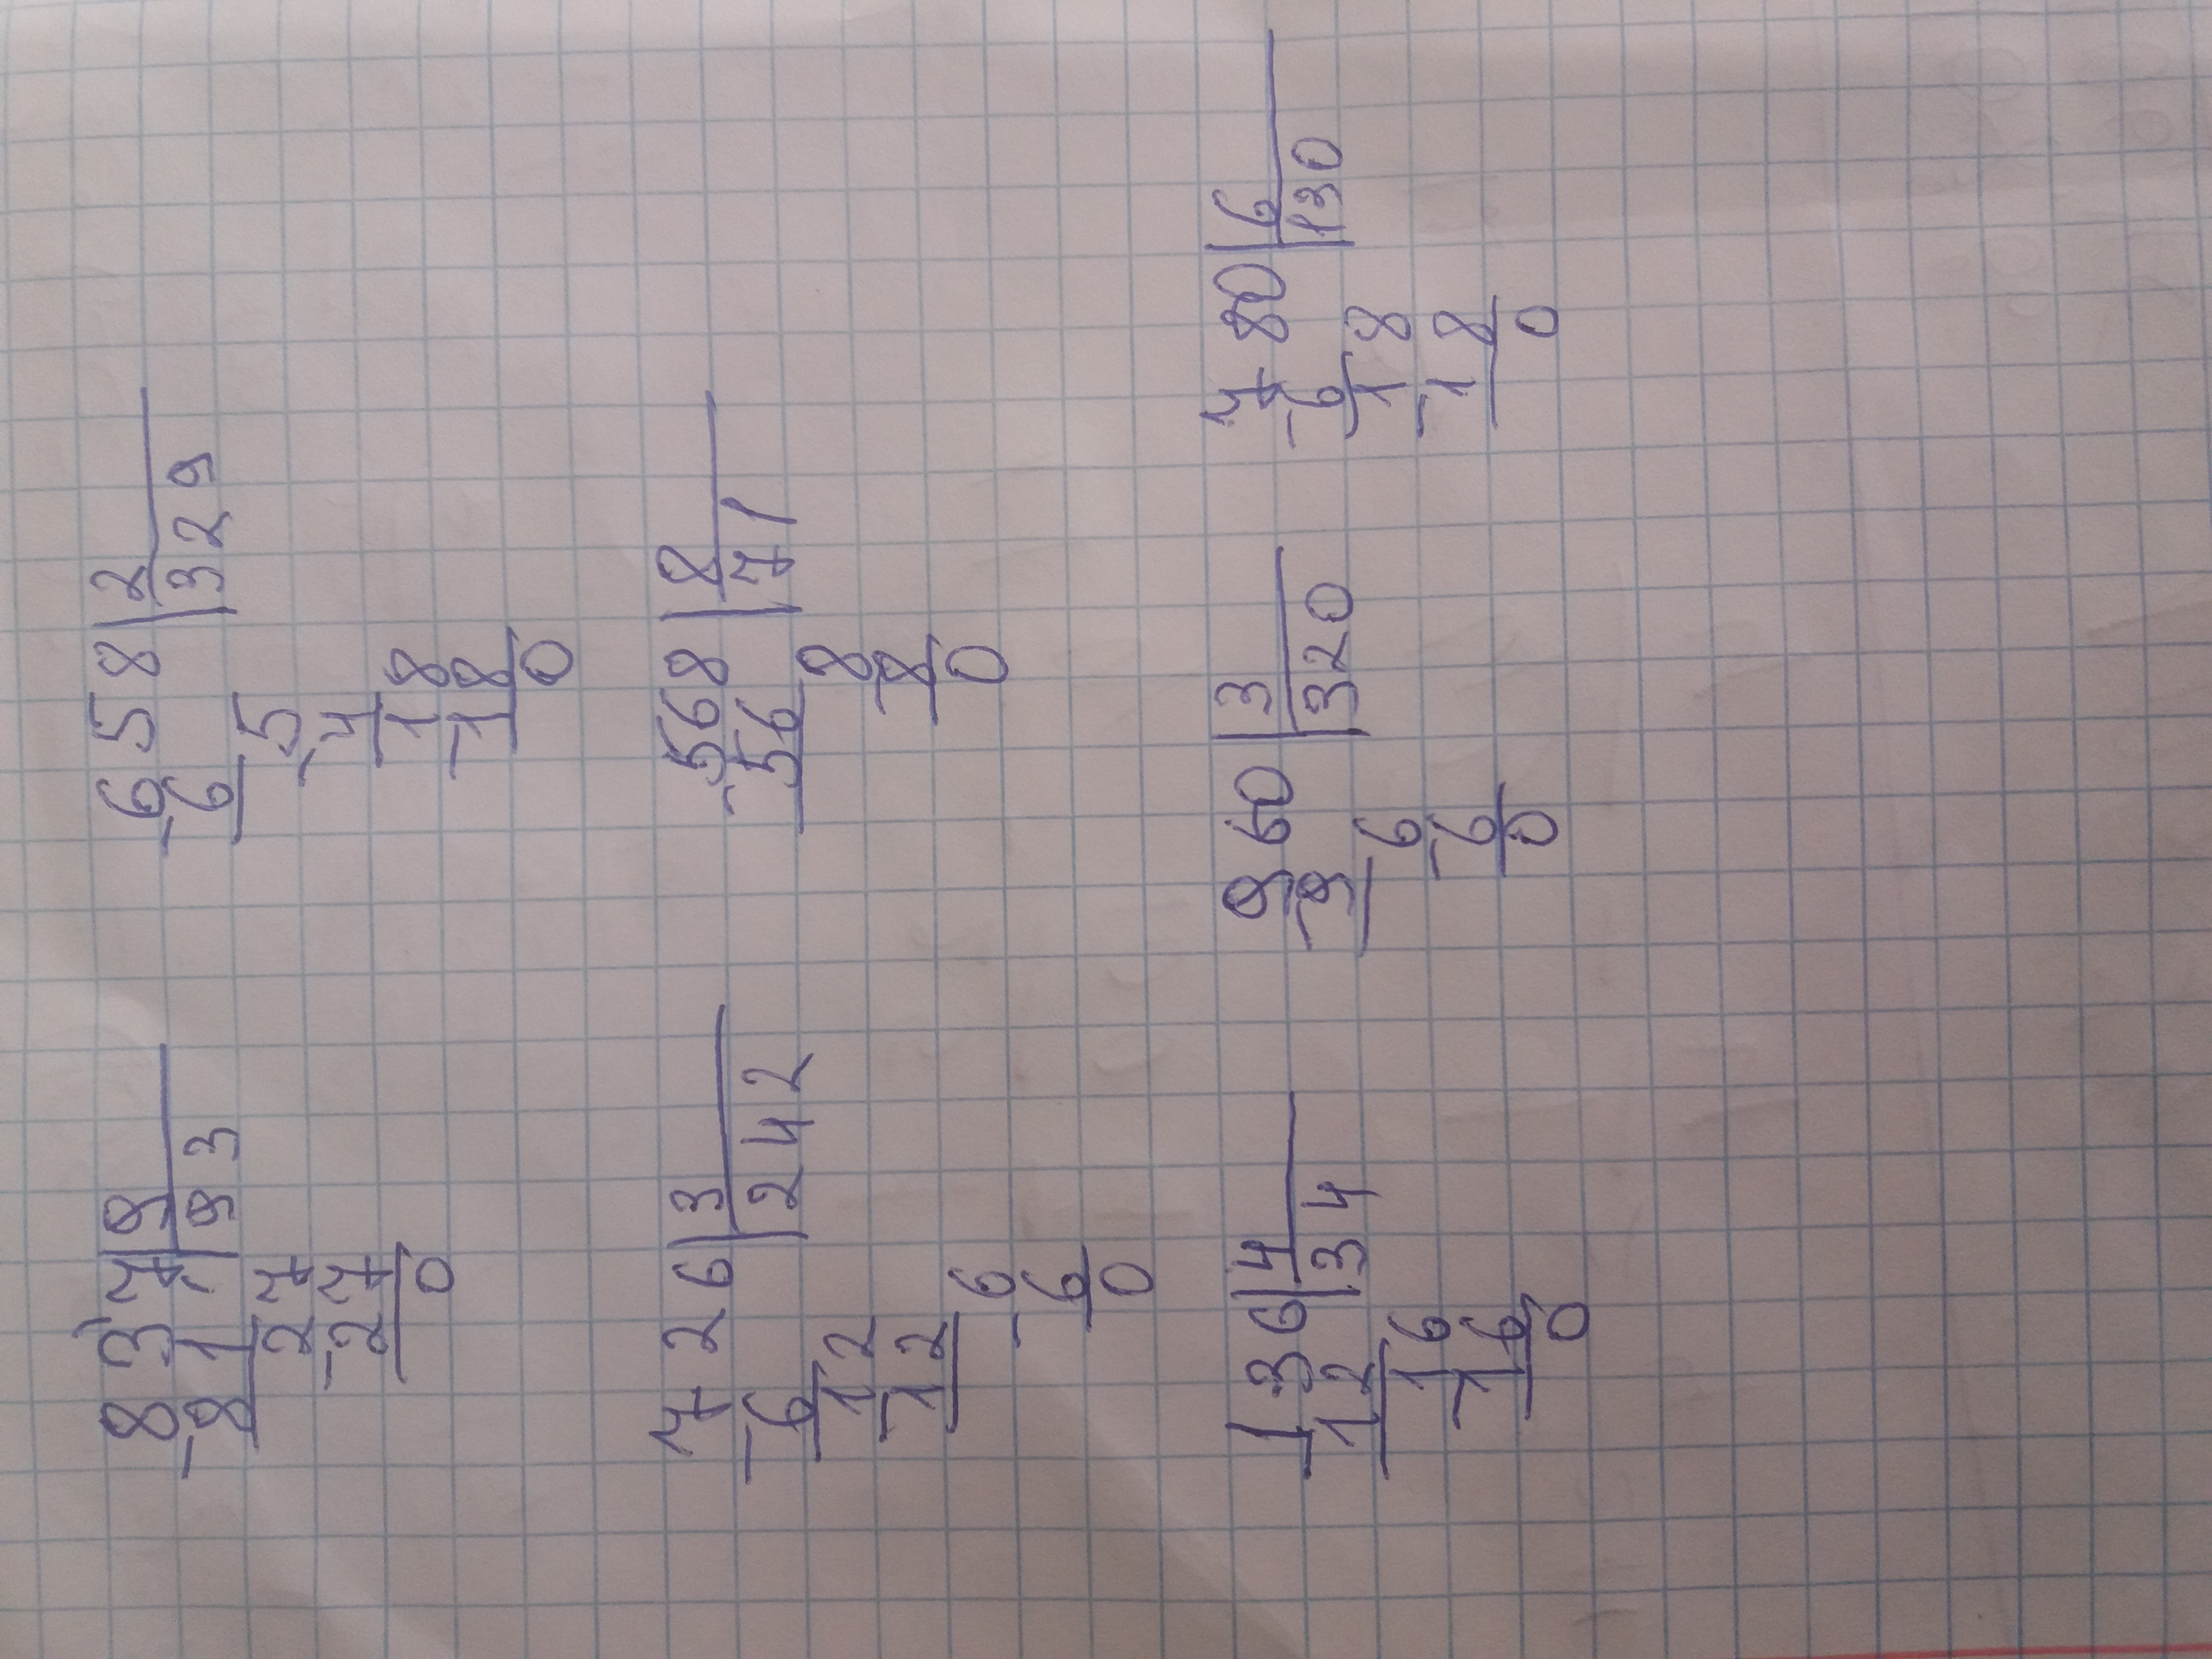 837 | 9 658 | 2
-81 | 93 -6 | 329
27 5
-27 -4
0 18
-18
0
726 | 3 568 | 8
-6 | 242 -56 | 71
12 8
-12 -8
6 0
-6
0
136 | 4 960 | 3 780 | 6
-12 | 34 -9 | 320 -6 | 130
16 6 18
-16 -6 -18
0 0 0